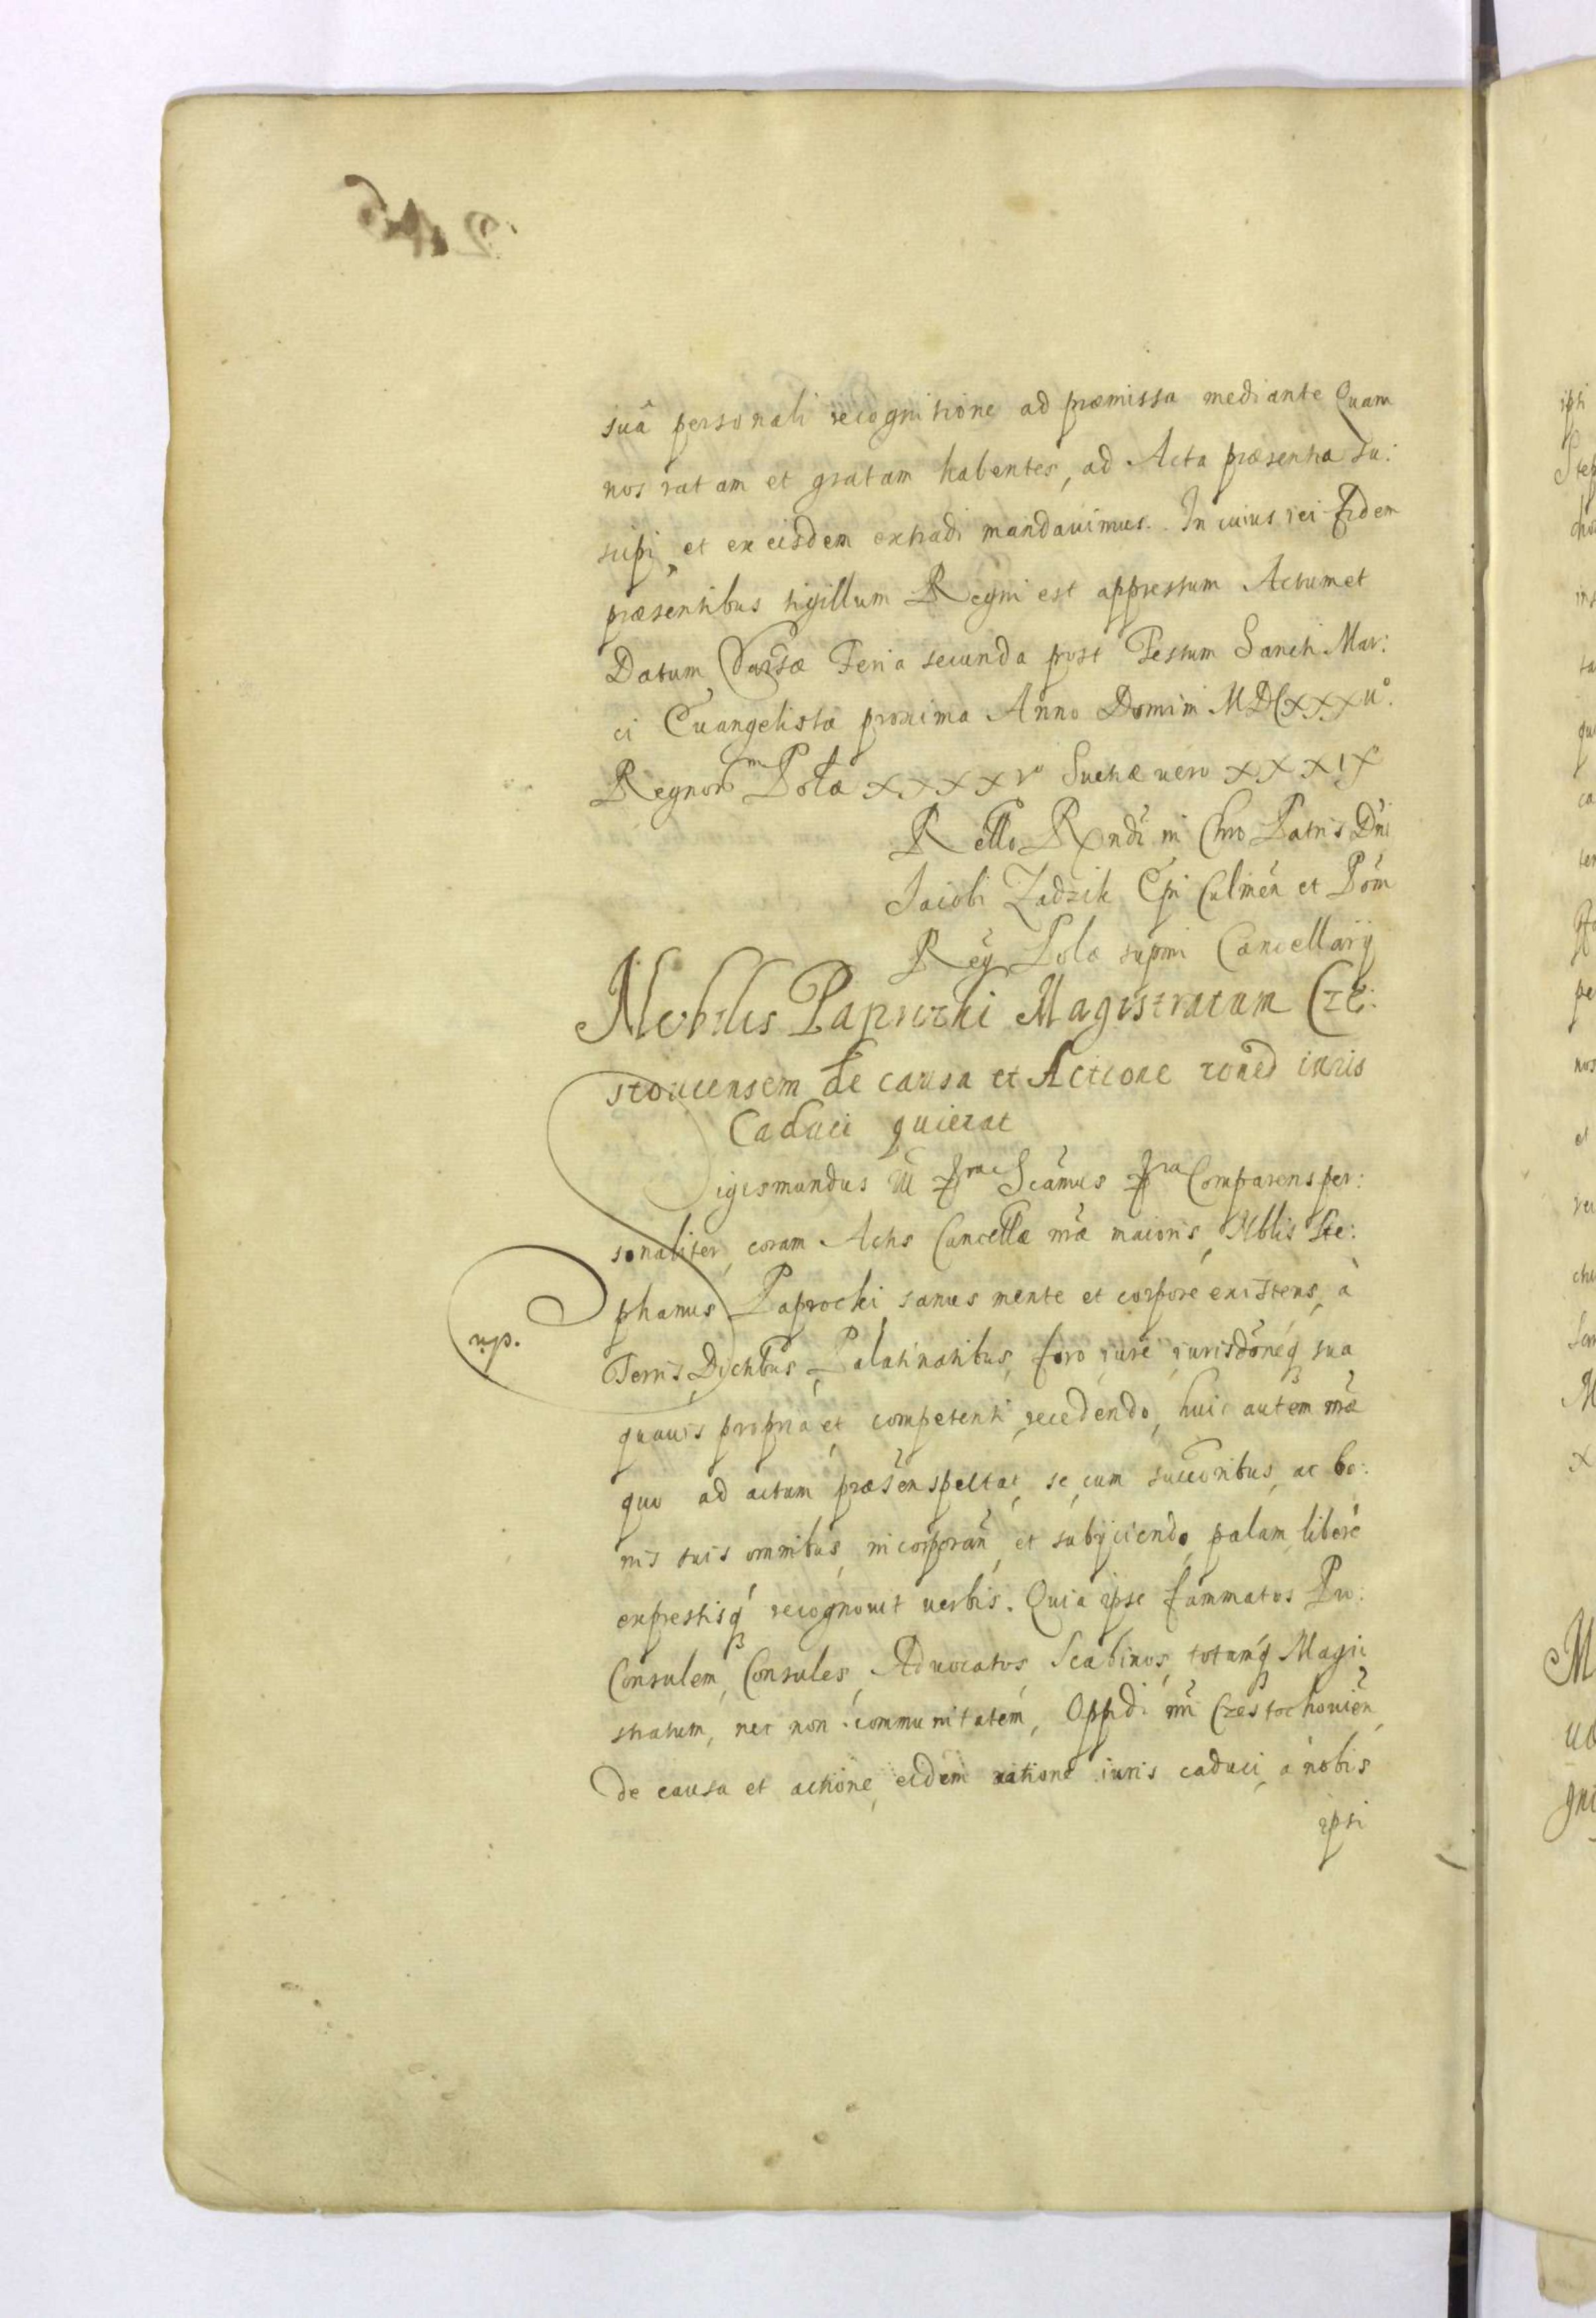 suâ personali recognitione ad præmissa mediante Quam
nos ratam et gratam habentes, ad Acta præsentia su:
scipi, et ex eisdem extradi mandavimus. In cuius rei fidem
præsentibus sigillum Regni est appressum Actum et
Datum Varsæ Feria secunda post Festum Sancti Mar:
ci Euangelistæ proxima Anno Domini MDCXXXIIº.
Regnorm Polæ XXXXVº Sueciæ vero XXXIX
Rello Rndi in Chro Patris Dni
Jacobi Zadzik Epi Culmen et Pom
Reg Polæ supmi Cancellarij
Nobilis Paprocki Magistratum Czę:
stouiensem de causa et Actione roned iuris
Caduci quietat
Sigismundus III Dra Scamus Pra Comparens per:
sonaliter, coram Actis Cancellæ nræ maioris, Nblis Ste:
phanus Paprocki sanus mente et corpore existens, à
np.
Terris, Dictibus, Palatinatibus, foro, iure, iurisdoneq sua
quauis propria et competenti, recedendo, huic autem nræ
quo ad actum præsen spectat, se, cum succoribus, ac bo:
nis suis omnibus, incorporan, et subijciendo, palam, libere
expressisq recognouit verbis. Quia ipse fammatos Pro:
Consulem, Consules, Aduocatos, Scabinos, totumq Magi:
stratum, nec non communitatem, Oppidi nri Czestochouien,
de causa et actione, eidem ratione iuris caduci, a nobis
ipsi